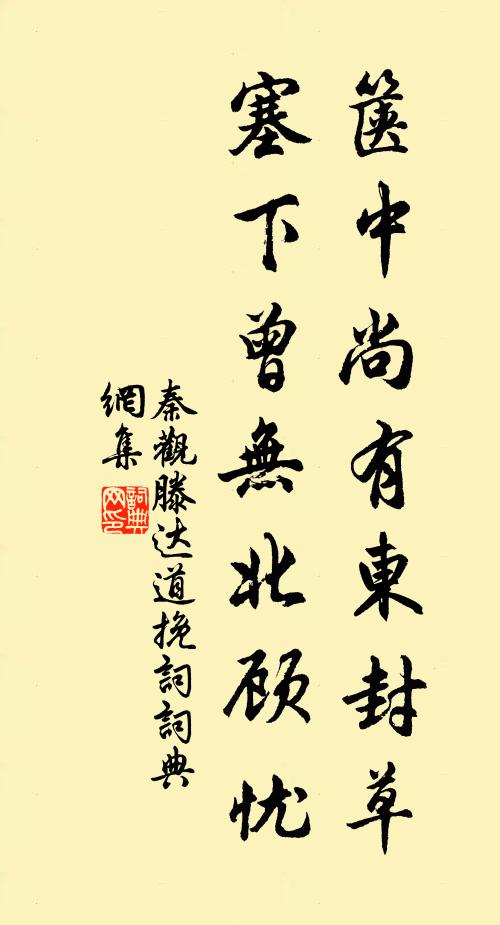 篋中尚有東封草
塞下曾無北顾忧
秦觀滕达道挽詞詞典
網集
詞典
网印